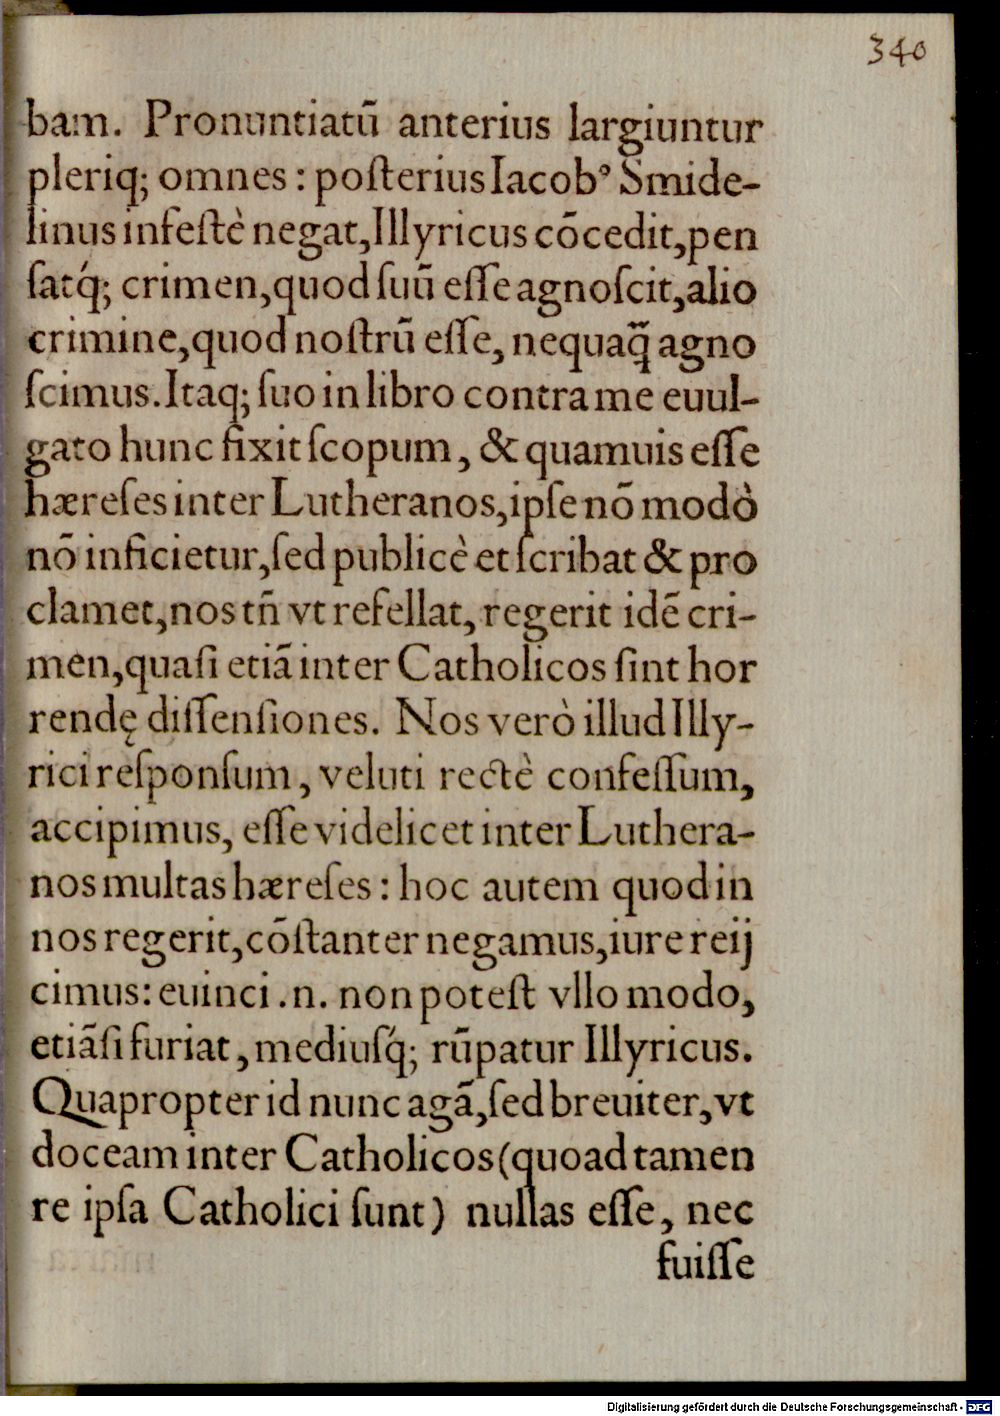 340
bam. Pronuntiatũ anterius largiuntur
pleriq; omnes : poſterius Iacobꝰ Smide-
linus infeſtè negat, Illyricus cõcedit, pen
ſatq́; crimen, quod ſuũ eſſe agnoſcit, alio
crimine, quod noſtrũ eſſe, nequaq̃ agno
ſcimus. Itaq; ſuo in libro contra me euul-
gato hunc fixit ſcopum, & quamuis eſſe
hæreſes inter Lutheranos, ipſe nõ modò
nõ inficietur, ſed publicè et ſcribat & pro
clamet, nos tñ vt refellat, regerit idẽ cri-
men, quaſi etiã inter Catholicos ſint hor
rendę diſſenſiones. Nos verò illud Illy-
rici reſponſum, veluti rectè confeſſum,
accipimus, eſſe videlicet inter Luthera-
nos multas hæreſes : hoc autem quod in
nos regerit, cõſtanter negamus, iure reij
cimus: euinci .n. non poteſt vllo modo,
etiãſi furiat, mediuſq́; rũpatur Illyricus.
Quapropter id nunc agã, ſed breuiter, vt
doceam inter Catholicos (quoad tamen
re ipſa Catholici ſunt) nullas eſſe, nec
fuiſſe
Digitalisierung gefördert durch die Deutsche Forschungsgemeinschaft - DFG